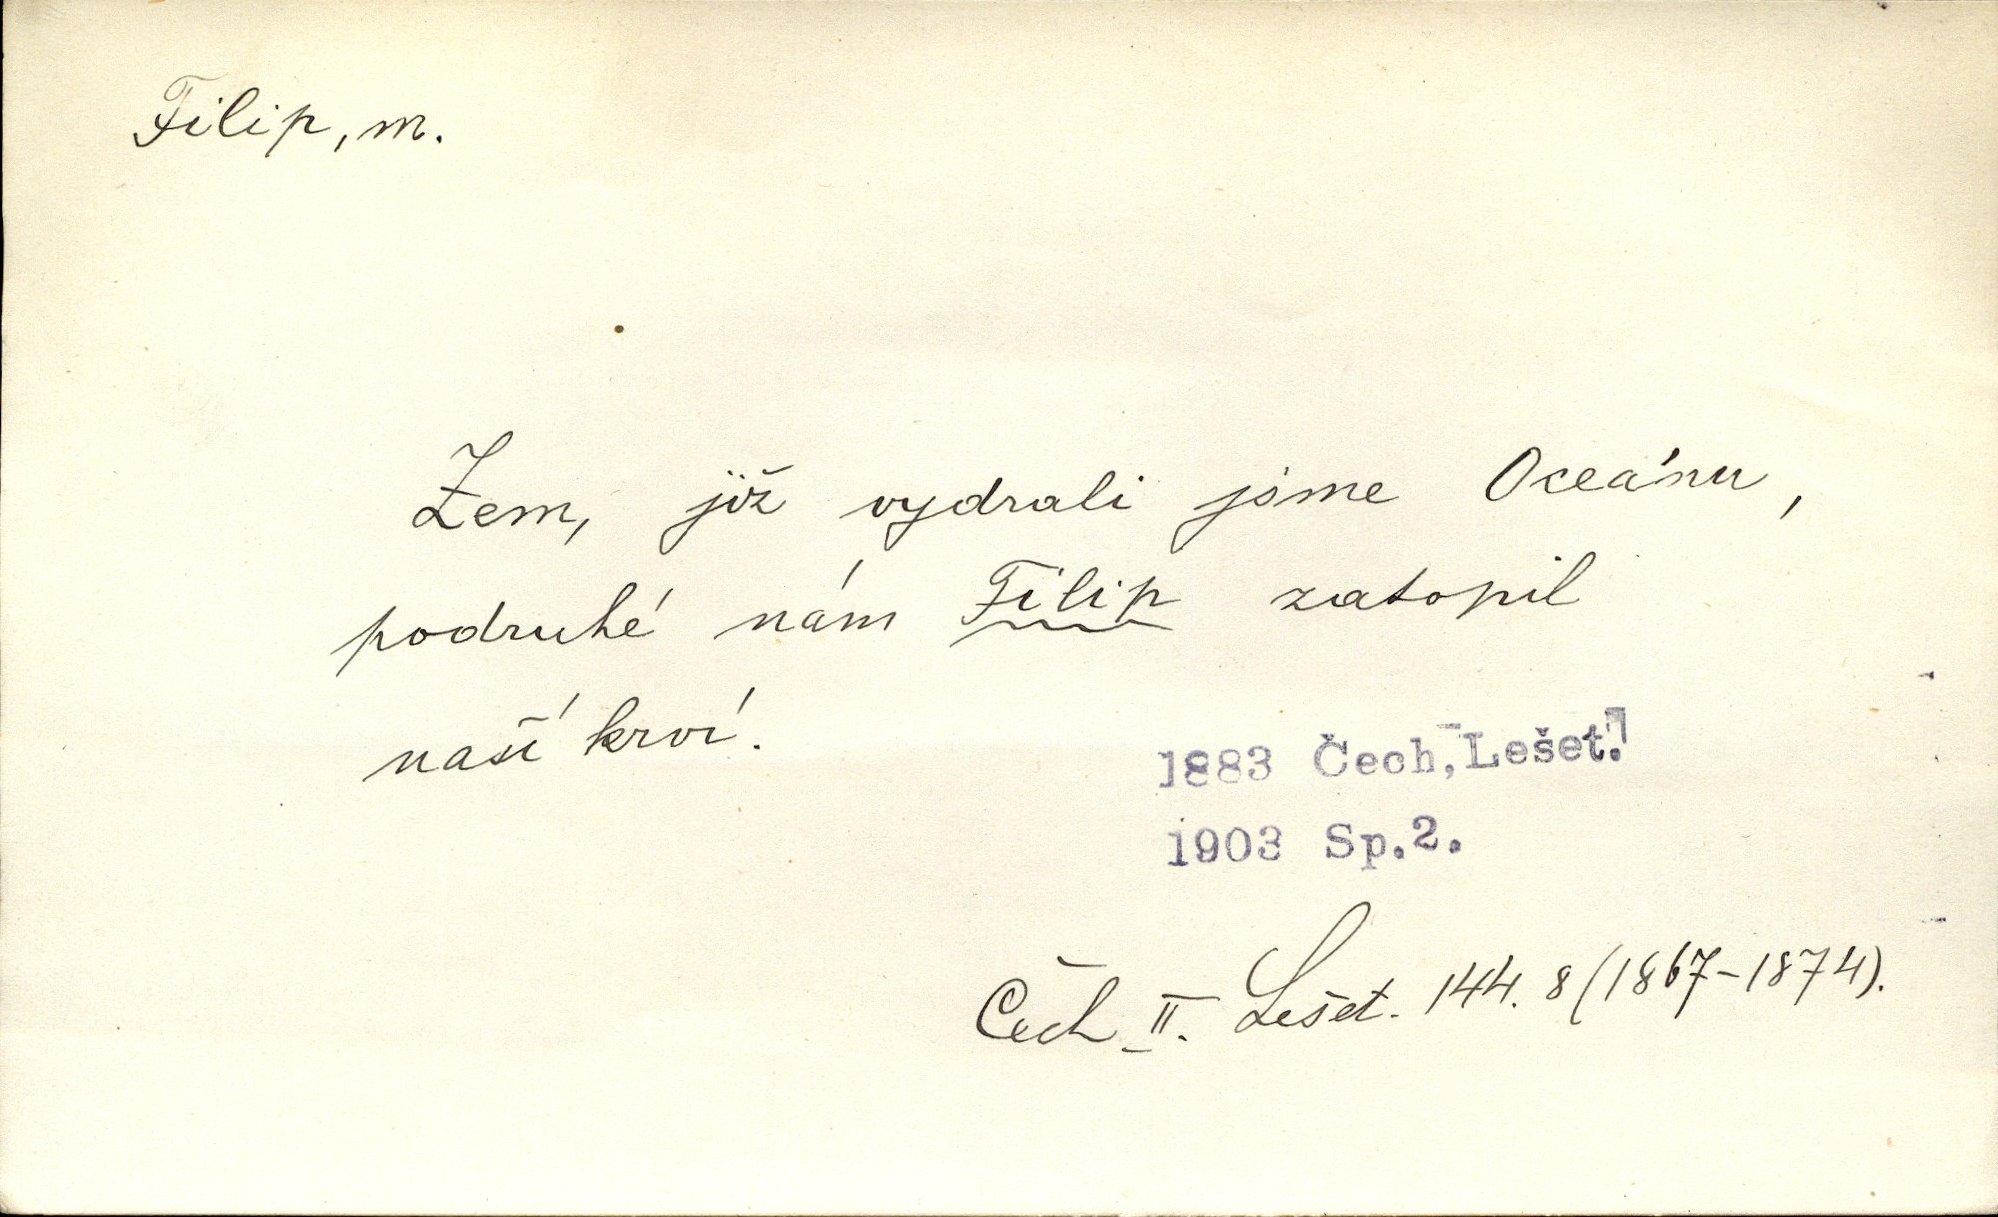 Filip, m.
Zem, již vydrali jsme Oceánu,
podruhé nám Filip zatopil
naší krví.
1883 Čech, Lešet.
1903 Sp.2.
Čech II. Lešet. 144. 8 (1867-1874).